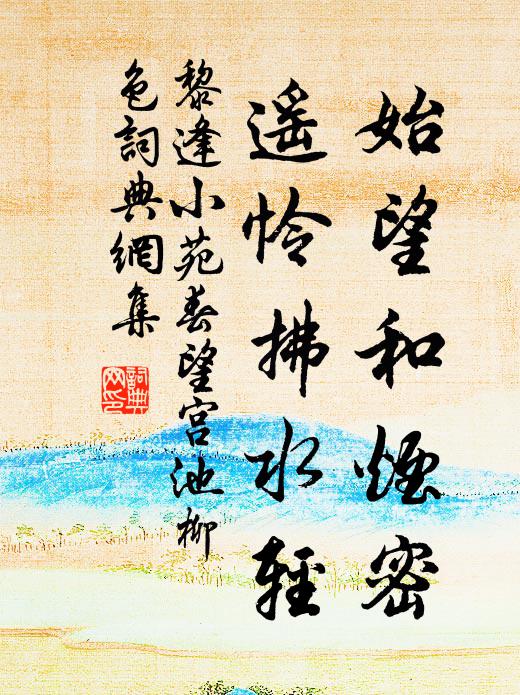 始望和煙密
遥怜拂水輕
黎逢小苑春望宮池柳
色詞典網集
詞典
网印